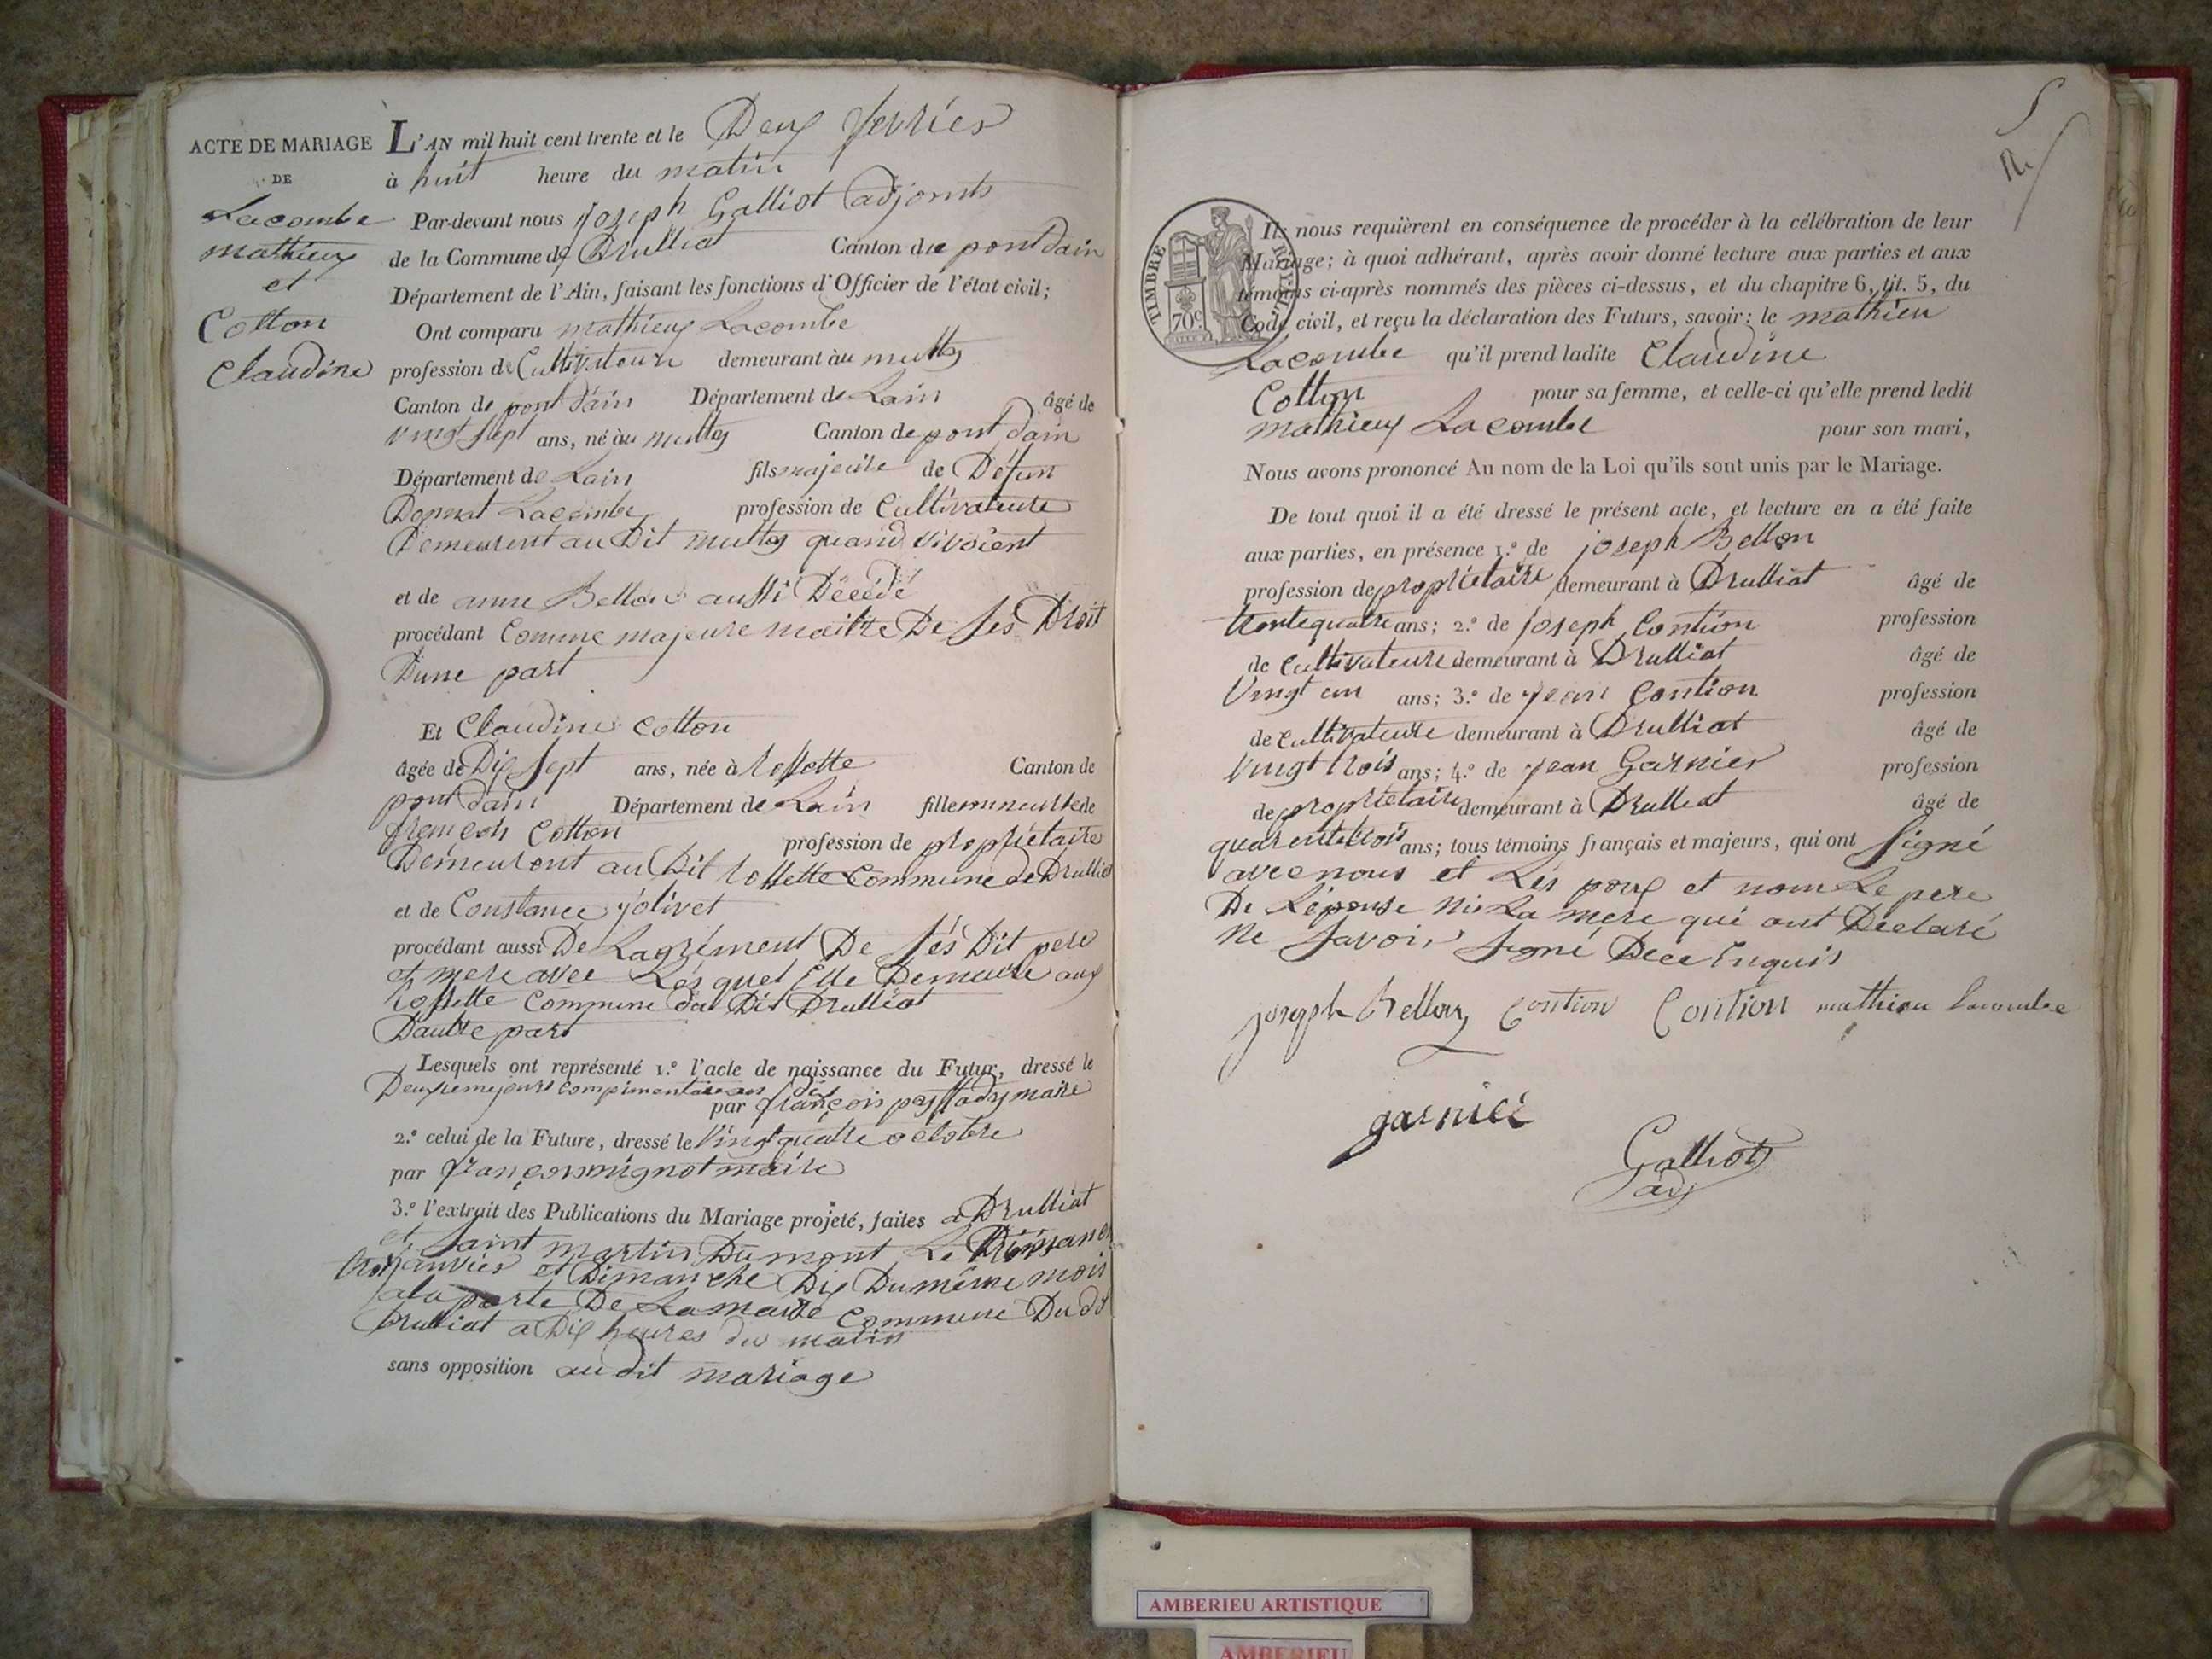 ACTE DE MARIAGE
DE
Lacombe
mathieux
et
Cotton
Claudine
L'AN mil huit cent trente et le Deux fevrier
à huit heure du matin
Par-devant nous joseph Galliot adjoints
de la Commune de Drulliat Canton due pont dain
Département de l'Ain, faisant les fonctions d'Officier de l'état civil;
Ont comparu mathieux Lacombe
profession de Cultivateure demeurant àu
Canton de pont dain Département de Lain âgé de
vingt sept ans, né àu Canton de pont dain
Département de Lain fils majeure de Défun
Lacombe profession de Cultivateure
Demeurent au Dit quand vivoient
et de anne Bellon aussi Décédé
procédant Comme majeure maitre De ses Droit
Dune part
Et Claudine Cotton
âgée de Dix sept ans, née à rossette Canton de
pont dain Département de Lain fille mineure de
françois Cotton profession de propriétaire
Demeuront au Dit rossette Commune de Drulliat
et de Constance jolivet
procédant aussi De Lagrément De sés Dit pere
et mere avec Lésquel Elle Demeure aux
rossette Commune du Dit Drulliat
Dautre part
Lesquels ont représenté 1.º l'acte de naissance du Futur, dressé le
Deuxieme jours compimentaire an dix
par françois maire
2.º celui de la Future, dressé le Vingt quatre octobre
par françois mignot maire
3.º l'extrait des Publications du Mariage projeté, faites a Drulliat
et saint martin Dumont Le
trois janvier et Dimanche Dix Du même mois
ala porte De La mairie Commune Du dit
Drulliat a Dix heures du matin
sans opposition au dit mariage
TIMBRE ROYAL
70c
Ils nous requièrent en conséquence de procéder à la célébration de leur
Mariage; à quoi adhérant, après avoir donné lecture aux parties et aux
témoins ci-après nommés des pièces ci-dessus, et du chapitre 6, tit. 5, du
Code civil, et reçu la déclaration des Futurs, savoir: le mathieu
Lacombe qu'il prend ladite Claudine
Cotton pour sa femme, et celle-ci qu'elle prend ledit
mathieux Lacombe pour son mari,
Nous avons prononcé Au nom de la Loi qu'ils sont unis par le Mariage.
De tout quoi il a été dressé le présent acte, et lecture en a été faite
aux parties, en présence 1.º de joseph Bellon
profession de propriétaire demeurant à Drulliat âgé de
trentequatre ans; 2.º de joseph Contion profession
de Cultivateure demeurant à Drulliat âgé de
Vingt un ans; 3.º de jean Contion profession
de Cultivateure demeurant à Drulliat âgé de
Vingt trois ans; 4.º de jean Garnier profession
de propriétaire demeurant à Drulliat âgé de
quarentetrois ans; tous témoins français et majeurs, qui ont signé
avec nous et Lés poux et nom Le pere
De Léponse ni La mere qui ont Declaré
ne savoir signé Dece Enquis
joseph Bellon Contion Contion mathieu lacombe
garnier
Galliot
adj
AMBERIEU ARTISTIQUE
AMBERIEU